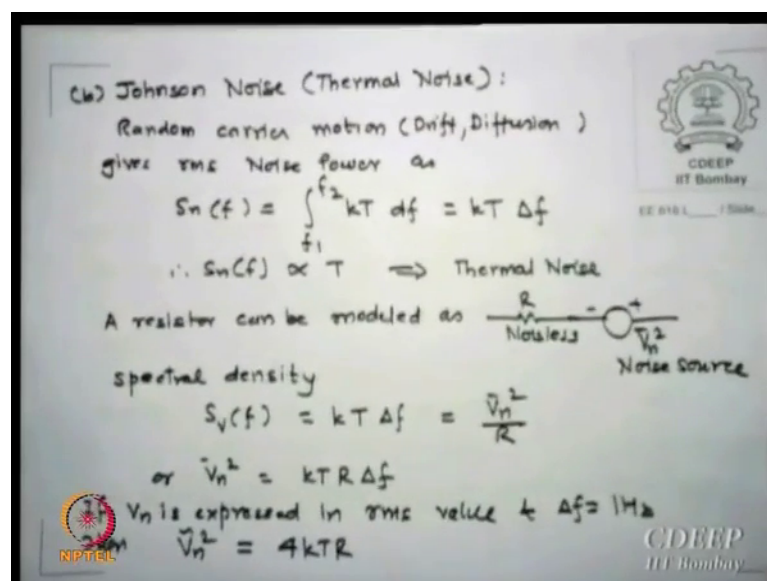 (b) Johnson Noise (Thermal Noise):
Random carrier motion (Drift, Diffusion)
gives rms Noise Power as
Sn(f) = ∫_{f1}^{f2} kT df = kT Δf
∴ Sn(f) ∝ T ⇒ Thermal Noise
A resistor can be modeled as R - +
Noiseless V̄n²
Noise source
spectral density
Sv(f) = kT Δf = V̄n²/R
or V̄n² = kTR Δf
If Vn is expressed in rms value & Δf = 1Hz
V̄n² = 4kTR
CDEEP
IIT Bombay
EE 618 L____ / Slide__
NPTEL
CDEEP
IIT Bombay